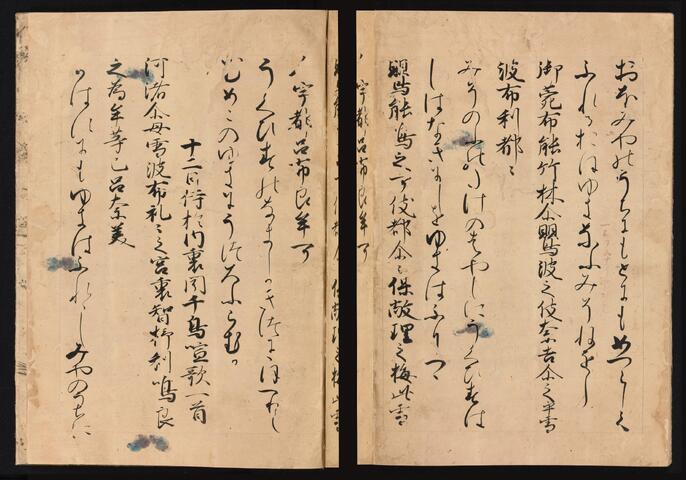 おほみやのうちにもとにもめつらしく
ふれるおほゆきなふみそねをし
御苑布能竹林尓鸎波之伎奈吉尓之乎雪
波布利都々
みそのふのたけのはやしにうくひすは
しはなきにしをゆきはふりつつ
鸎能鳴之可伎都尓々保敝理之梅此雪
尓宇都呂布良牟可
うくひすのなきしかきつににほへりし
むめこのゆきにうつろふらむか
十二日侍於内裏聞千鳥喧歌一首
河渚尓母雪波布礼々之宮裏智杼利鳴良
之為牟等己呂奈美
かはすにもゆきはふれれしみやのうちに